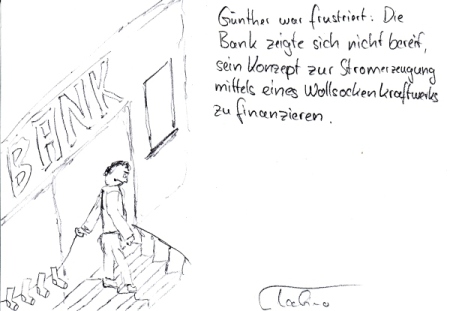 Günther war frustriert: Die
Bank zeigte sich nicht bereit,
sein Konzept zur Stromerzeugung
mittels eines Wollsockenkraftwerks
zu finanzieren.
BANK